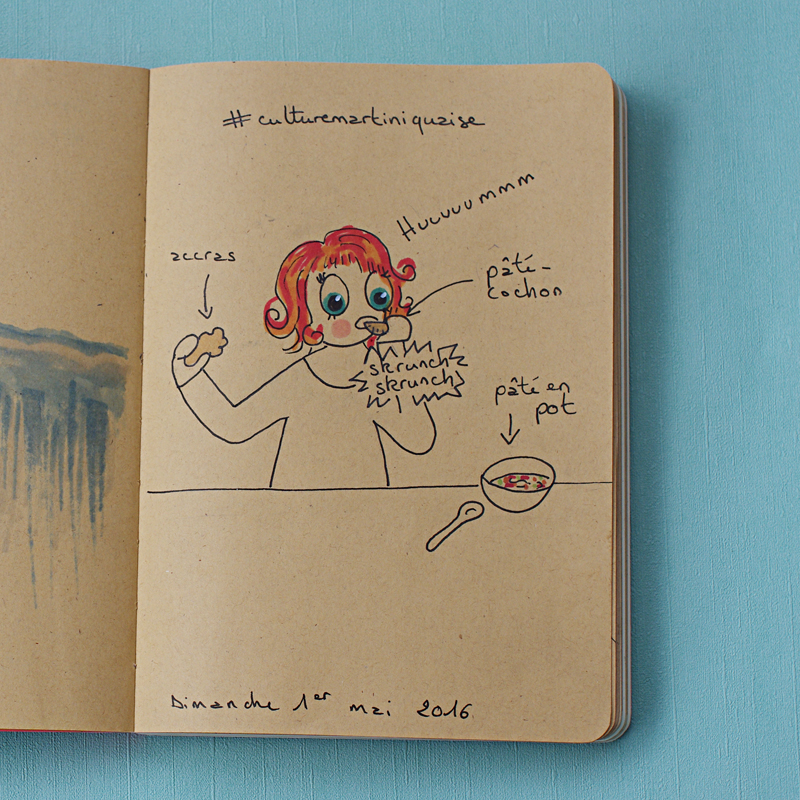 #culturemartiniquaise
Huuuuummmm
accras
pâté-
cochon
skrunch
skrunch
!
pâté en
pot
Dimanche 1er mai 2016.